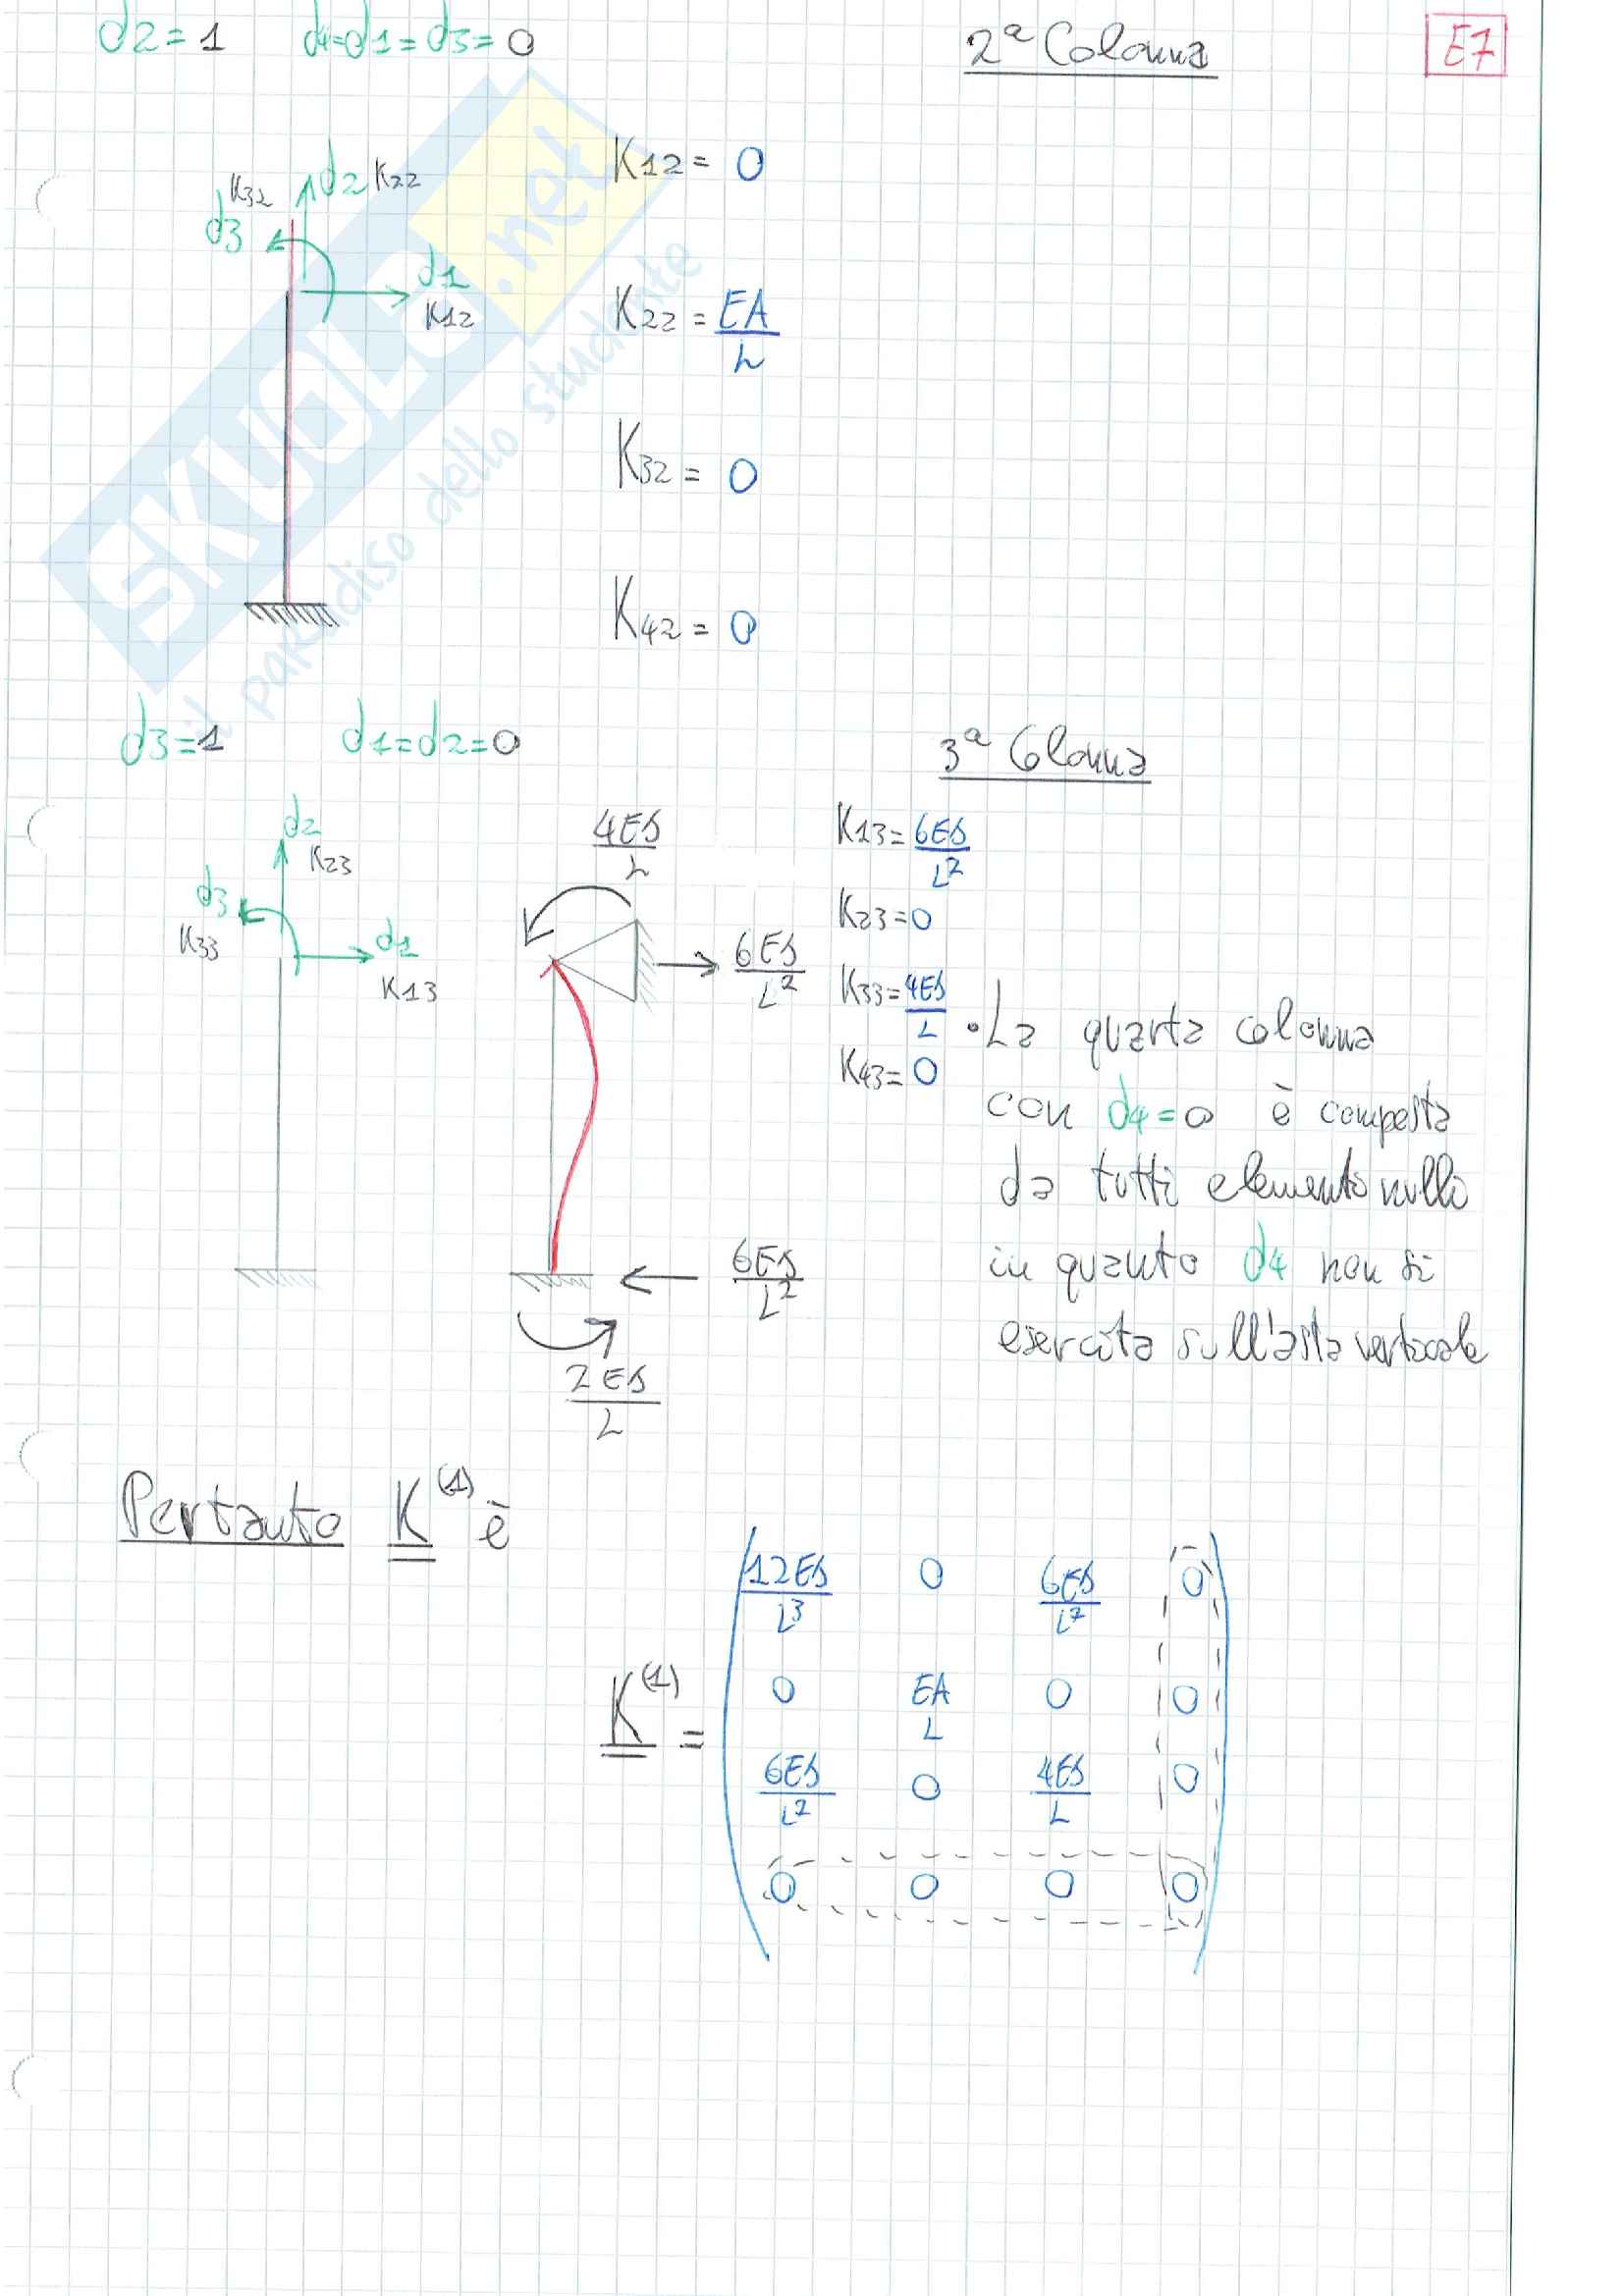 d2=1 d4=d1=d3=0 2ª Colonna E7
K12= 0
K32 d2 K22
d3
d1
K12
K22 = EA/L
K32 = 0
K42 = 0
SKUOLA.net
il paradiso dello studente
d3=1 d1=d2=0 3ª Colonna
d2
K23
d3
K33
d1
K13
4EJ/L
6EJ/L²
6EJ/L²
2EJ/L
K13= 6EJ/L²
K23=0
K33= 4EJ/L
K43= 0
• La quarta colonna
con d4=0 è composta
da tutti elemento nullo
in quanto d4 non si
esercita sull'asta verticale
Pertanto K(1) è
K(1) =
12EJ/L³ 0 6EJ/L² 0
0 EA/L 0 0
6EJ/L² 0 4EJ/L 0
0 0 0 0